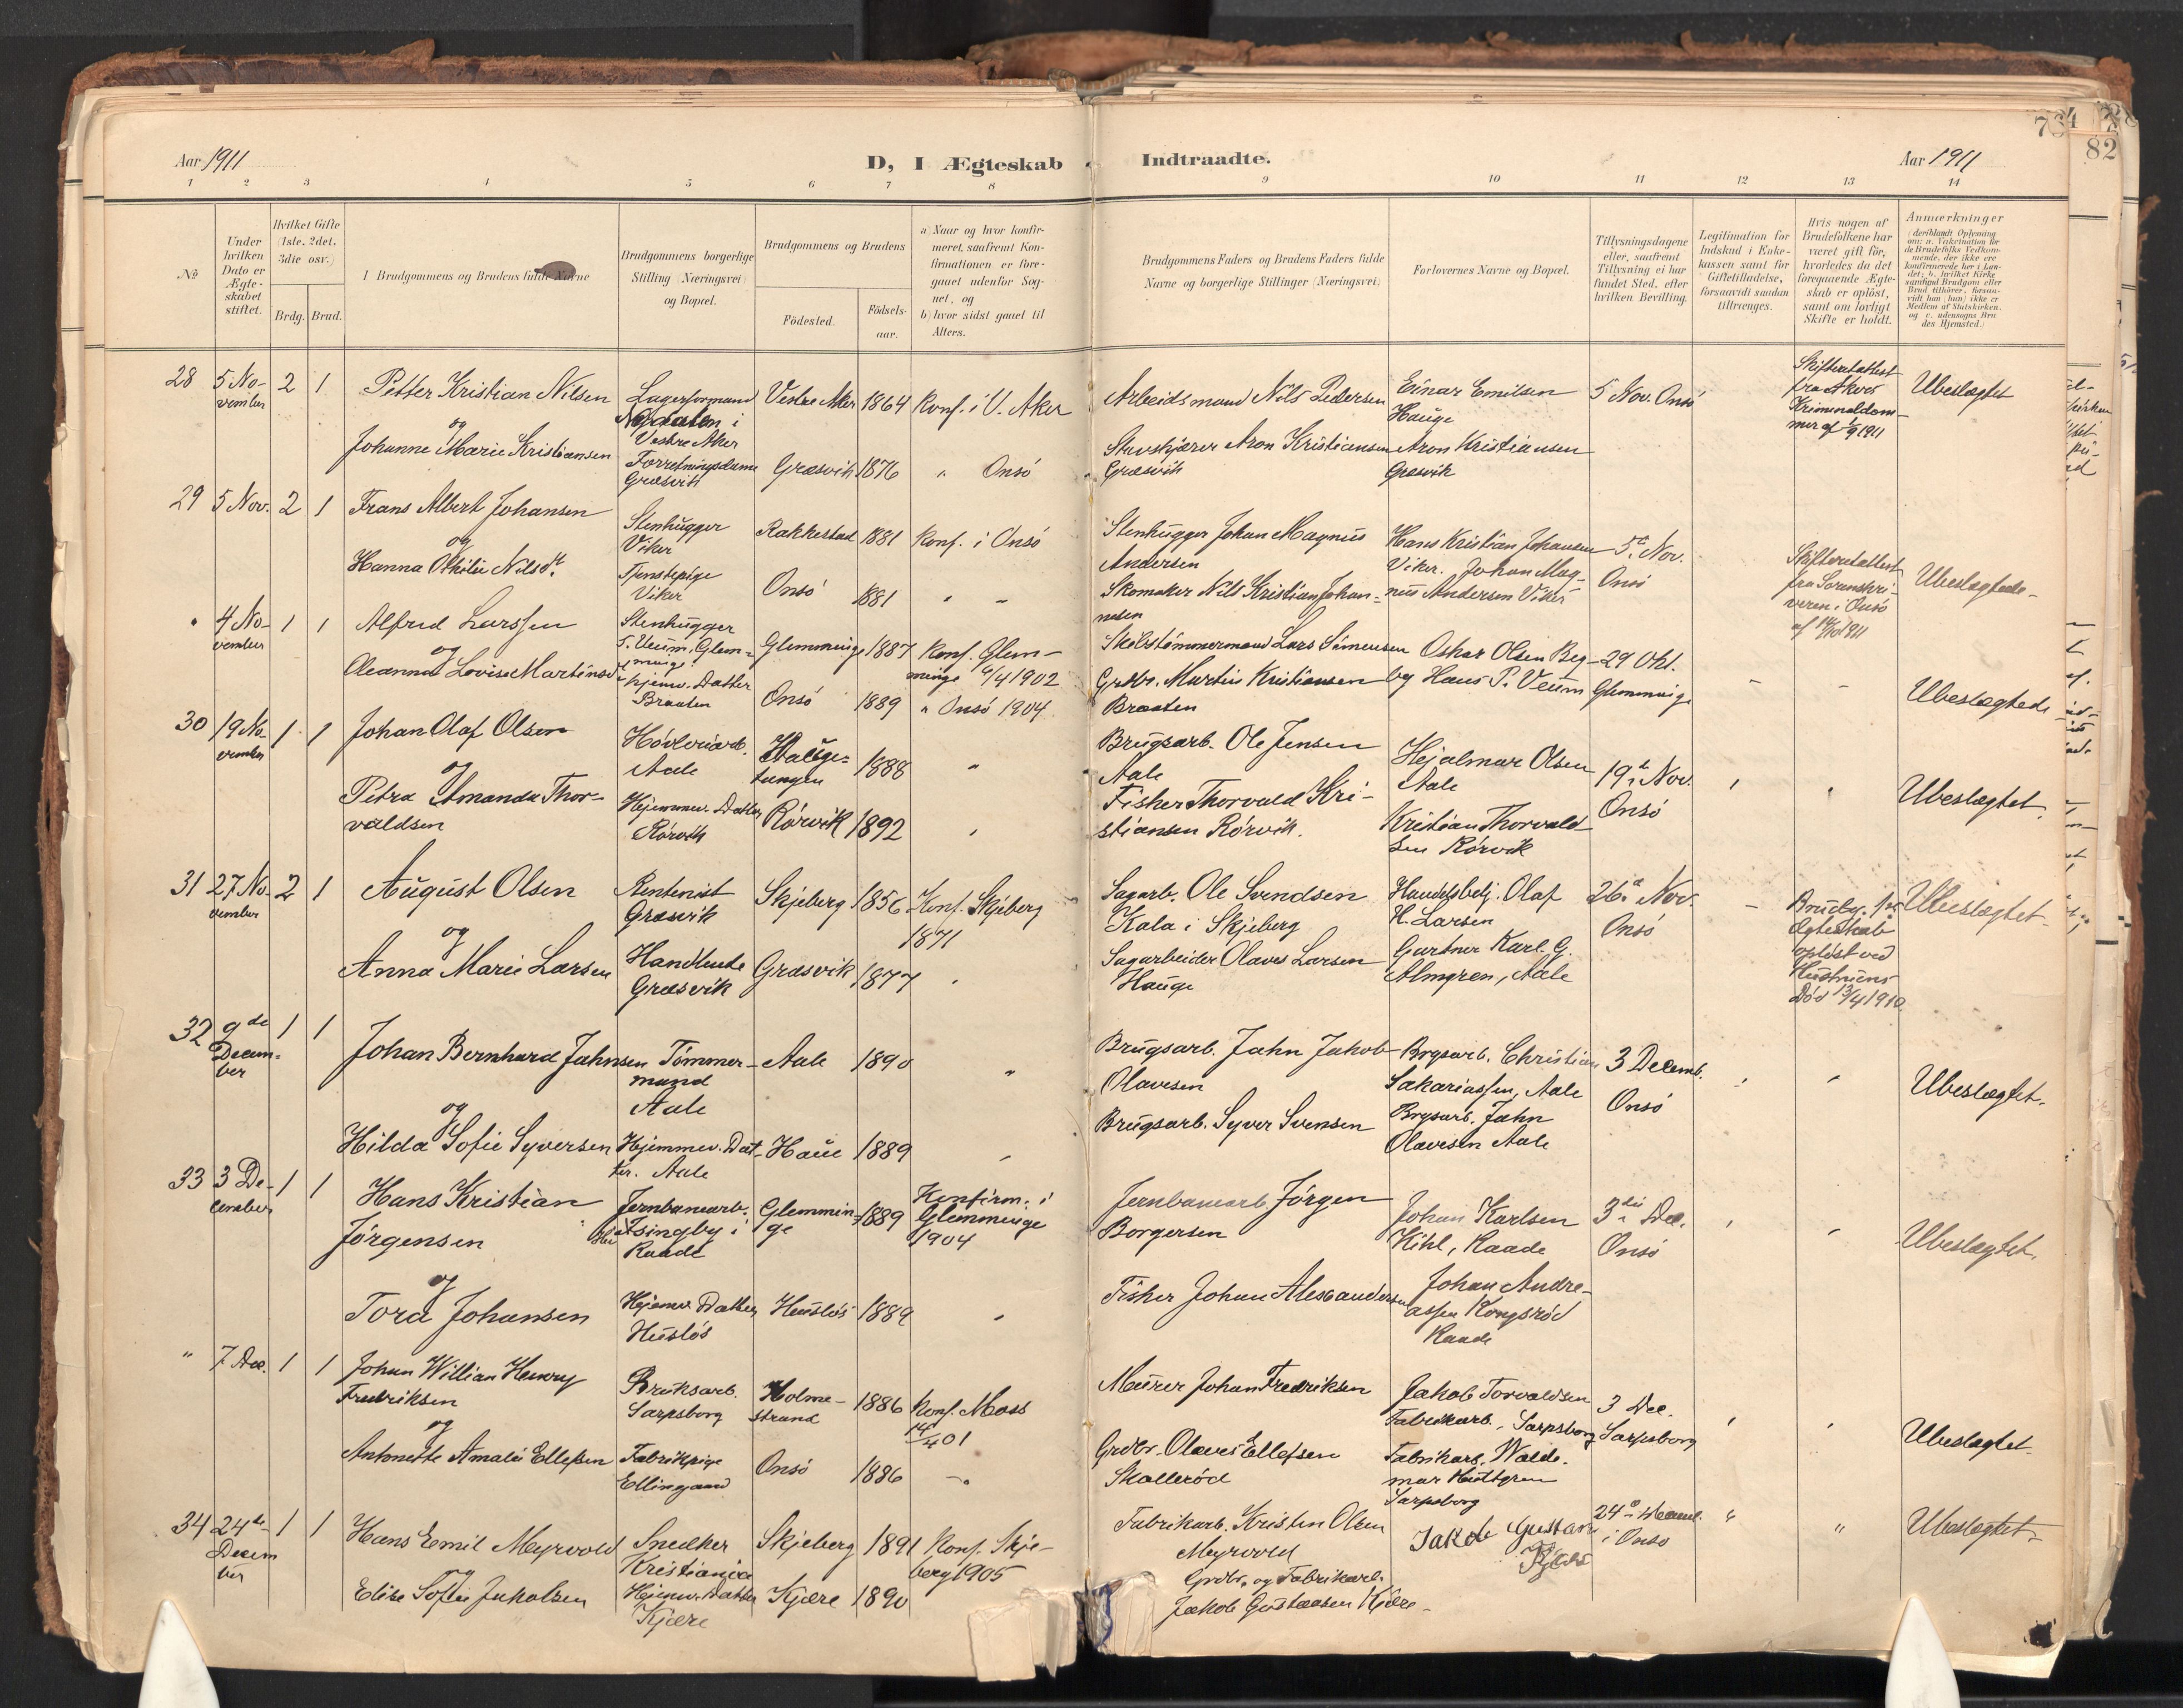 Aar 1911
D, I Ægteskab
Indtraadte.
Aar 1911
82
1 2 3 4 5 6 7 8 9 10 11 12 13 14
No
Under hvilken Dato er Ægteskabet stiftet.
Hvilket Gifte (1ste, 2det, 3die osv.)
Brdg. Brud.
I Brudgommens og Brudens fulde Navne
Brudgommens borgerlige Stilling (Næringsvei) og Bopæl.
Brudgommens og Brudens
Fødested.
Fødselsaar.
a) Naar og hvor konfirmeret, saafremt Konfirmationen er foregaaet udenfor Sognet, og
b) hvor sidst gaaet til Alters.
Brudgommens Faders og Brudens Faders fulde Navne og borgerlige Stillinger (Næringsvei)
Forlovernes Navne og Bopæl.
Tillysningsdagene eller, saafremt Tillysning ei har fundet Sted, efter hvilken Bevilling.
Legitimation for Indskud i Enkekassen samt for Giftetilladelse, forsaavidt saadan tiltrænges.
Hvis nogen af Brudefolkene har været gift før, hvorledes da det foregaaende Ægteskab er opløst, samt om lovligt Skifte er holdt.
Anmerkninger
(deriblandt Oplysning om: a. Vakcination for de Brudefolks Vedkommende, der ikke ere konfirmerede her i Landet; b. hvilket Kirkesamfund Brudgom eller Brud tilhører, forsaavidt han (hun) ikke er Medlem af Statskirken, og c. udensogns Brudes Hjemsted.)
28 5 November 2 1
Petter Kristian Nilsen
Lagerformand
i Vestre Aker
Vestre Aker 1864 Konf. i V. Aker
Arbeidsmand Nils Pedersen
Einar Emilsen Hauge
5 Nov. Onsö
Skifteattest fra Akers 1911
Ubeslægtet
og
Johanne Marie Kristiansen
Forretningsdame Græsvik
Græsvik 1876 " Onsö
Aron Kristiansen Græsvik
Aron Kristiansen Græsvik
29 5 Nov. 2 1
Frans Albert Johansen
Stenhugger Viker
Rakkestad 1881 Konf. i Onsö
Stenhugger Johan Magnus Andersen
Hans Kristian Johansen Viker. Johan Magnus Andersen Viker
5te Nov. Onsö
Skifteretattest fra Sorenskriveren i Onsö af 14/10 1911
Ubeslægtede
og
Hanna Othilie Nilsdt.
Tjenstepige Viker
Onsö 1881 " "
Skomaker Nils Kristian Johannesen
" 4 November 1 1
Alfred Larssen
Stenhugger
S. Veum, Glemminge
Glemminge 1887 Konf. Glemminge 6/4 1902
Skibstömmermand Lars Simensen
Oskar Olsen Begby Hans P. Veum
29 Okt. Glemminge
Ubeslægtede
og
Oleanna Lovise Martinsd
Hjemv. Datter Braaten
Onsö 1889 " Onsö 1904
Grdbr. Martin Kristiansen Braaten
30 19 November 1 1
Johan Olaf Olsen
Hövleriarb. Aale
Haugetangen 1888 "
Brugsarb. Ole Jensen Aale
Hejalmar Olsen Aale
19de Nov. Onsö
Ubeslægtet.
og
Petra Amanda Thorvaldsen
Hjemmev. Datter Rörvik
Rörvik 1892 "
Fisker Thorvald Kristiansen Rörvik.
Kristian Thorvaldsen Rörvik
31 27 November 2 1
August Olsen
Rentenist Græsvik
Skjeberg 1856 Konf. Skjeberg 1871
Sagarb. Ole Svendsen Kala i Skjeberg
Handelsbetj. Olaf H. Larsen
26de Nov. Onsö
Brudg. 1ste Ægteskab oplöst ved Hustruens Död 13/4 1910
Ubeslægtet
og
Anna Marie Larsen
Handlende Græsvik
Græsvik 1877 "
Sagarbeider Olaves Larsen Hauge
Gartner Karl G. Almgren, Aale
32 9de December 1 1
Johan Bernhard Jahnsen
Tömmermand Aale
Aale 1890 "
Brugsarb. Jahn Jakob Olavesen
Brgsarb. Christian Sakariassen, Aale
3 Decemb. Onsö
Ubeslægtet.
og
Hilda Sofie Syversen
Hjemmev. Datter. Aale
Haue 1889 "
Brugsarb. Syver Svensen
Brgsarb. Jahn Olavesen Aale
33 3 December 1 1
Hans Kristian Jörgensen
Jernbanearb. i Raade
Glemminge 1889 Konfirm. i Glemminge 1904
Jernbanearb Jörgen Borgersen
Johan Karlsen Kihl, Raade
3die Dec. Onsö
Ubeslægtet.
og
Tora Johansen
Hjemv. Datter Huslös
Huslös 1889 "
Fisker Johan Alexandersen
Johan Andreassen Kongsröd Raade
" 7 Dec. 1 1
Johan Willian Henry Fredriksen
Bruksarb. Sarpsborg
Holmestrand 1886 Konf. Moss 14/4 01
Maurer Johan Fredriksen
Jakob Torvaldsen Fabrikarb., Sarpsborg
3 Dec. Sarpsborg
Ubeslægtet
og
Antonette Amalie Ellefsen
Fabrikpige Ellingaard
Onsö 1886 "
Grdbr. Olaves Ellefsen Skalleröd
Fabrikarb. Waldemar Hultgren Sarpsborg
34 24de December 1 1
Hans Emil Meyrvold
Snedker Kristiania
Skjeberg 1891 Konf. Skjeberg 1905
Fabrikarb. Kristen Olsen Meyrvold
Jakob Gustavs Kjære
24de i Onsö
Ubeslægtet
og
Elise Sofie Jakobsen
Hjemv. Datter Kjære
Kjære 1890
Grdbr. og Fabrikarb. Jakob Gustavsen Kjære